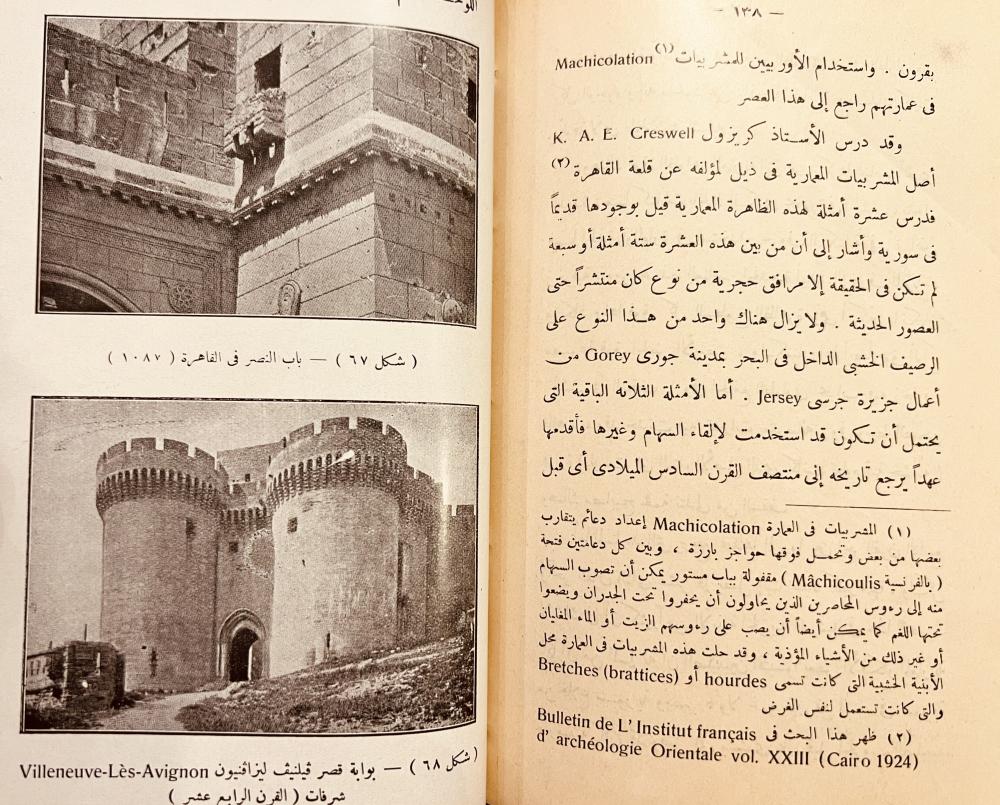 (شكل ٦٧) — باب النصر فى القاهرة (١٠٨٧)
(شكل ٦٨) — بوابة قصر ڤيلنيڤ ليزاڤنيون Villeneuve-Lès-Avignon
شرفات (القرن الرابع عشر)
— ١٣٨ —
بقرون . واستخدام الأوربيين للمشربيات (١) Machicolation
فى عمارتهم راجع إلى هذا العصر
وقد درس الأستاذ كريزول K. A. E. Creswell
أصل المشربيات المعمارية فى ذيل لمؤلفه عن قلعة القاهرة (٢)
فدرس عشرة أمثلة لهذه الظاهرة المعمارية قيل بوجودها قديماً
فى سورية وأشار إلى أن من بين هذه العشرة ستة أمثلة أو سبعة
لم تكن فى الحقيقة إلا مرافق حجرية من نوع كان منتشراً حتى
العصور الحديثة . ولا يزال هناك واحد من هذا النوع على
الرصيف الخشبى الداخل فى البحر بمدينة جورى Gorey من
أعمال جزيرة جرسى Jersey . أما الأمثلة الثلاثه الباقية التى
يحتمل أن تكون قد استخدمت لإلقاء السهام وغيرها فأقدمها
عهداً يرجع تاريخه إلى منتصف القرن السادس الميلادى أى قبل
(١) المشربيات فى العمارة Machicolation إعداد دعائم يتقارب
بعضها من بعض وتحمل فوقها حواجز بارزة ، وبين كل دعامتين فتحة
(بالفرنسية Mâchicoulis) مقفولة بباب مستور يمكن أن تصوب السهام
منه إلى رءوس المحاصرين الذين يحاولون أن يحفروا تحت الجدران ويضعوا
تحتها اللغم كما يمكن أيضاً أن يصب على رءوسهم الزيت أو الماء المغليان
أو غير ذلك من الأشياء المؤذية ، وقد حلت هذه المشربيات فى العمارة محل
الأبنية الخشبية التى كانت تسمى hourdes أو Bretches (brattices)
والتى كانت تستعمل لنفس الغرض
(٢) ظهر هذا البحث فى Bulletin de L'Institut français
d'archéologie Orientale vol. XXIII (Cairo 1924)